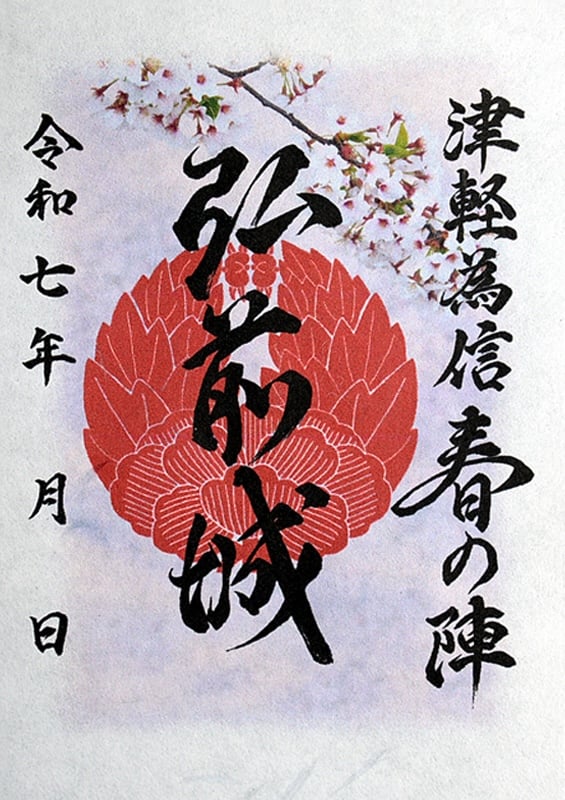 津軽為信春の陣
弘前城
令和七年 月 日